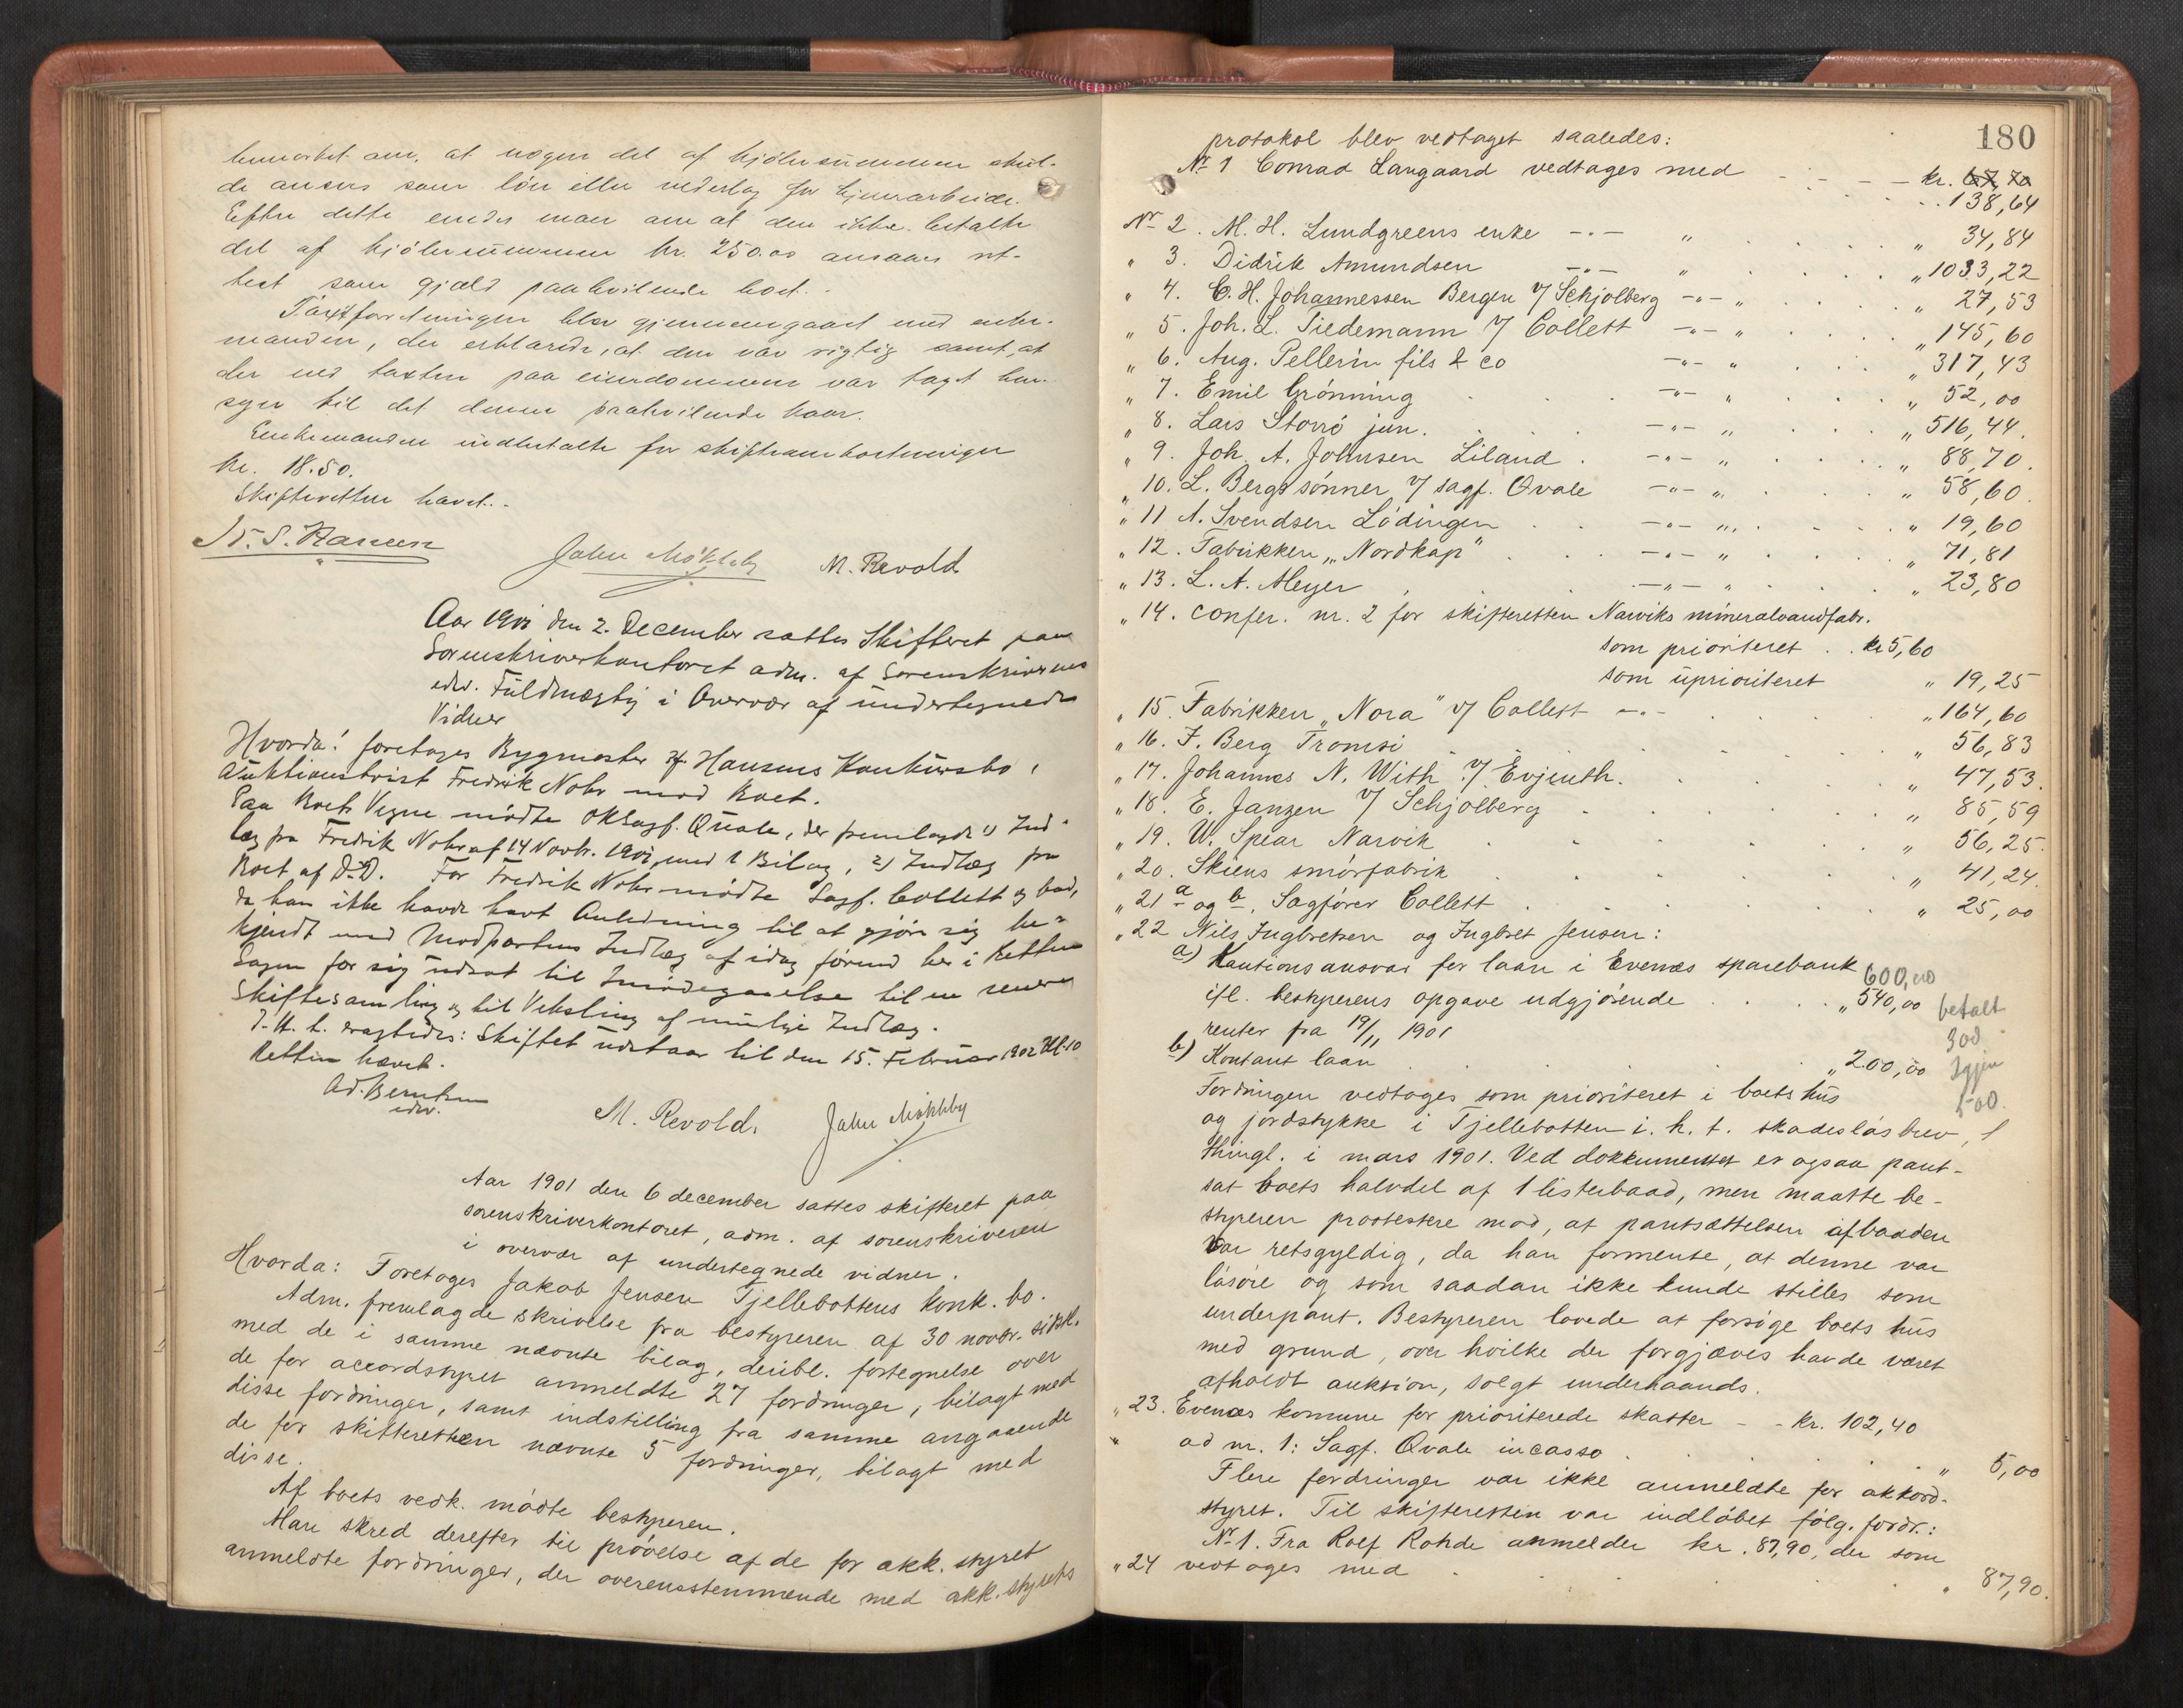 bemerket om, at nogen del af kjøbesummen skul-
de ansees som løn eller vederlag for hjemmearbeide.
Efter dette enedes man om at den ikke betalte
del af kjøbesummen kr. 250.00 ansaaes ret-
test som gjæld paahvilende boet.
Taxtforretningen blev gjennemgaaet med enke-
manden, der erklærede, at den var rigtig samt, at
der ved taxten paa eiendommen var taget hen-
syn til det denne paahvilende kaar.
Enkemanden indbetalte for skifteomkostninger
kr. 18.50.
Skifteretten hævet.
John Mökleby M. Revold
Aar 1901 den 2. December sattes Skifteret paa
Sorenskriverkontoret adm. af Sorenskriverens
edsv. Fuldmægtig i Overvær af undertegnede
Vidner
Hvorda! foretoges Bygmester Hansens Konkursbo,
Auktionstvist Fredrik Nohr mod Boet.
Paa Boets Vegne mødte OKSagf. Qvale, der fremlagde 1) Ind-
læg fra Fredrik Nohr af 14 Novbr. 1901, med 1 Bilag, 2) Indlæg fra
Boet af D.D. For Fredrik Nohr mødte Sagf. Collett og bad,
da han ikke havde havt Anledning til at gjøre sig be-
kjendt med Modpartens Indlæg af idag førend her i Retten
Sagen for sig udsat til Imødegaaelse til en senere
Skiftesamling og til Veksling af mulige Indlæg.
I. H. t. vragtedes: Skiftet udstaar til den 15. Februar 1902 Kl. 10
Retten hævet.
Ad. Berntsen
edsv.
M. Revold. John Mökleby
Aar 1901 den 6 december sattes skifteret paa
sorenskriverkontoret, adm. af sorenskriveren
i overvær af undertegnede vidner.
Hvorda: Foretoges Jakob Jensen Tjellebottens konk. bo.
Adm. fremlagde skrivelse fra bestyreren af 30 novbr. sidstl.
med de i samme nævnte bilag, deribl. fortegnelse over
de for accordstyret anmeldte 27 fordringer, bilagt med
disse fordringer, samt indstilling fra samme angaaende
de for skifteretten nævnte 5 fordringer, bilagt med
disse.
Af boets vedk. mødte bestyreren.
Man skred derefter til prøvelse af de for akk. styret
anmeldte fordringer, der overensstemmende med akk. styrets
180
protokol blev vedtaget saaledes:
No 1 Conrad Langaard vedtages med - - - - kr. 67,70
138,64
Nr 2. M. H. Lundgreens enke -"- " . . . " 34,84
" 3. Didrik Amundsen -"- " . . . " 1033,22
" 4. C. H. Johannessen Bergen v/ Schjølberg -"- " . . . " 27,53
" 5. Joh. L. Tiedemann v/ Collett -"- " . . . " 145,60
" 6. Aug. Pellerin fils & co -"- " . . . " 317,43
" 7. Emil Grønning . . . -"- " . . . " 52,00
" 8. Lars Storrö jun. . . . -"- " . . . " 516,44.
" 9. Joh. A. Johnsen Liland . -"- " . . . " 88,70.
" 10. L. Bergs sønner v/ sagf. Qvale -"- " . . . " 58,60.
" 11 A. Svendsen Lödingen . . -"- " . . . " 19,60
" 12. Fabrikken "Nordkap" . . . -"- " . . . " 71,81
" 13. L. A. Meyer . . . -"- " . . . " 23,80
" 14. confer. nr. 2 for skifteretten Narviks mineralvandfabr.
som prioriteret . . kr 5,60
som uprioriteret " 19,25
" 15. Fabrikken "Nora" v/ Collett -"- . . . " 164,60
" 16. F. Berg Tromsö . . . " 56,83
" 17. Johannes N. With v/ Evjenth. . . . " 47,53.
" 18. E. Janzen v/ Schjølberg . . . " 85,59
" 19. W. Spear Narvik . . . " 56,25.
" 20. Skiens smørfabrik . . . " 41,24.
" 21 a og b. Sagfører Collett . . . " 25,00
" 22 Nils Ingbretsen og Ingbret Jensen:
a) Kautionsansvar for laan i Evenæs sparebank 600,00
ifl. bestyrerens opgave udgjørende . . . " 540,00 betalt
renter fra 19/11 1901 300
b) Kontant laan . . . " 200,00 Igjen
Fordringen vedtages som prioriteret i boets hus 500.
og jordstykke i Tjellebotten i. h. t. skadesløsbrev,
thingl. i mars 1901. Ved dokkumentet er ogsaa pant-
sat boets halvdel af 1 listerbaad, men maatte be-
styreren prostestere mod, at pantsættelsen af baaden
var retsgyldig, da han formente, at denne var
løsøre og som saadan ikke kunde stilles som
underpant. Bestyreren lovede at forsøge boets hus
med grund, over hvilke der forgjæves havde været
afholdt auksion, solgt underhaands.
" 23. Evenæs komune for prioriterede skatter - - kr. 102,40
" ad nr. 1: Sagf. Qvale incasso . . . " 5,00
Flere fordringer var ikke anmeldte for akkord-
styret. Til skifteretten var indløbet følg. fordr.:
No 1. Fra Rolf Rohde anmelder kr. 87,90, der som
" 24 vedtages med . . . " 87,90.